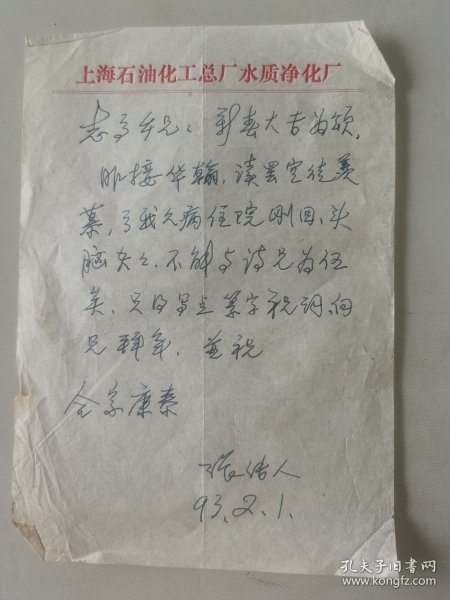 上海石油化工总厂水质净化厂
新春大吉为颂,
昨接华翰,读罢空徒羡
慕,我久病住院刚回,头
脑 不能与诗兄为伍
矣,只的 字祝词向
兄拜年,并祝
全家康泰
人
93.2.1.
孔夫子旧书网
www.kongfz.com